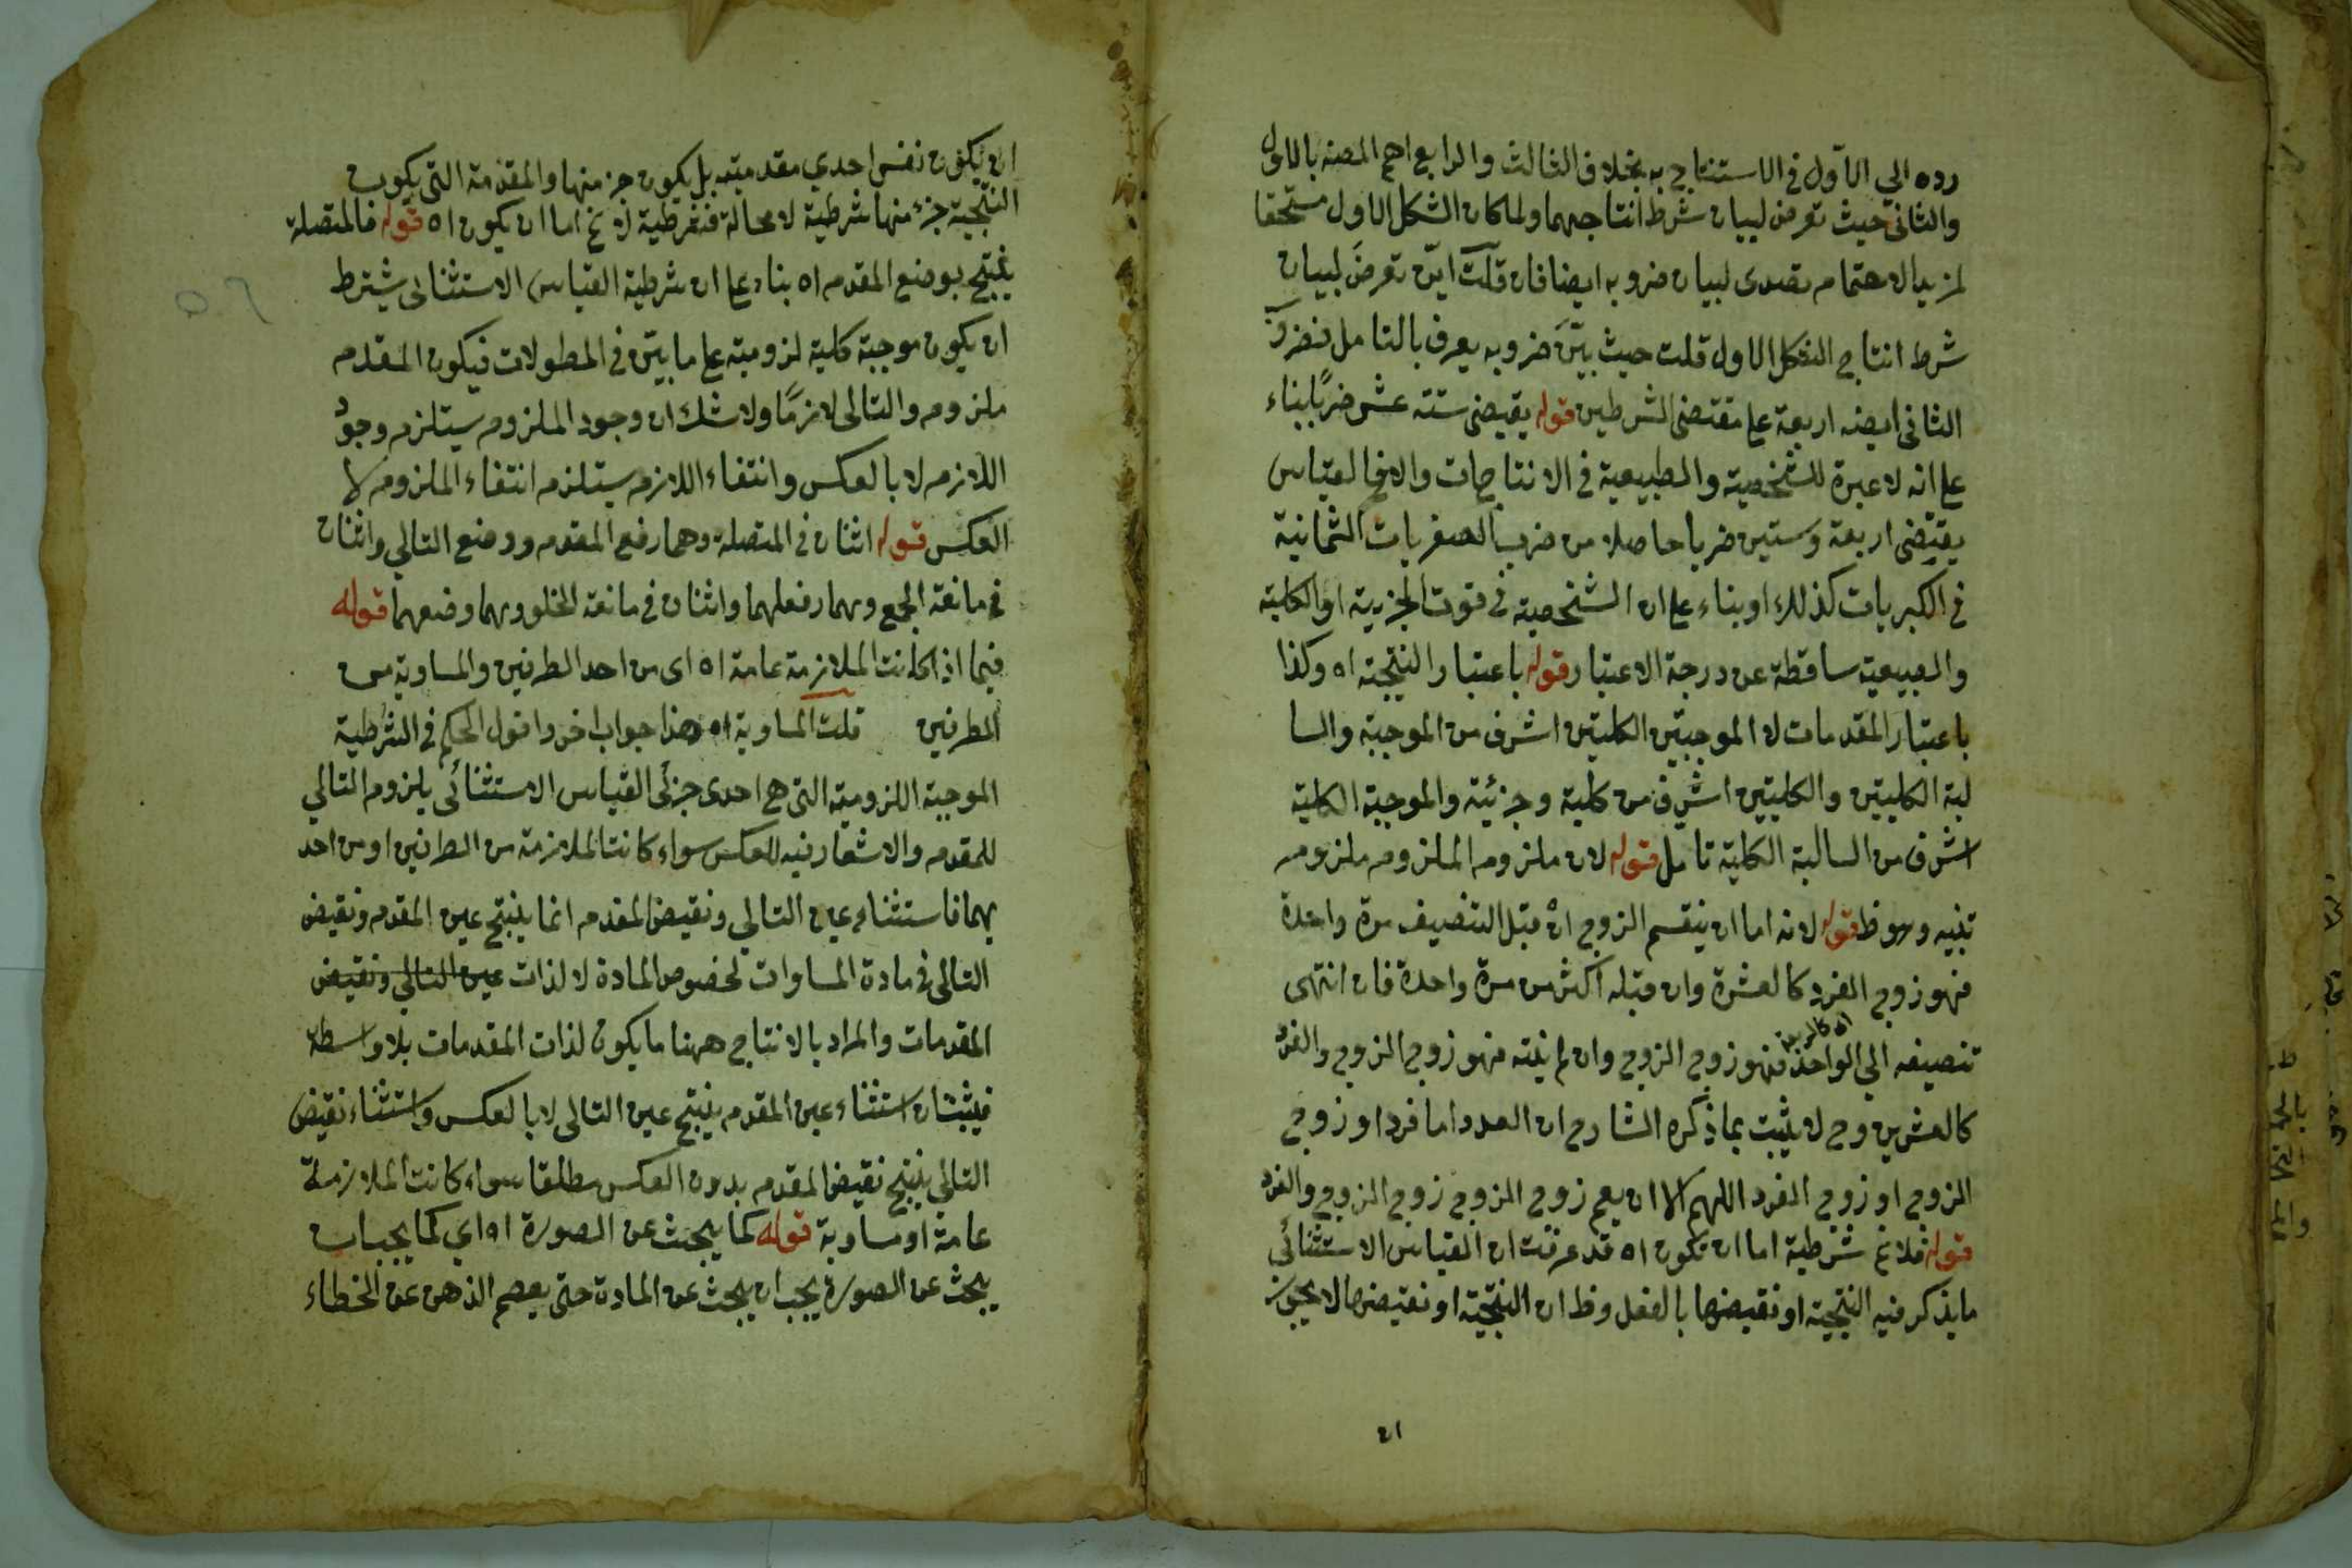 رده الي الاول في الاستنتاج به بخلاف الثالث والرابع اهم المصنه بالاول
والثاني حيث تعرض لبيان شرط انتاجهما ولما كان الشكل الاول مستحقا
لمزيد الاهتمام تصدى لبيان ضروبه ايضا فان قلت اين تعرض لبيان
شرط انتاج الشكل الاول قلت حيث بين ضروبه يعرف بالتامل فضروب
الثاني ايضه اربعة على مقتضى الشرطين قوله يقيضى ستته عشر ضربا بناء
على انه لا عبرة للشخصية والطبيعية في الانتاجات والا فالقياس
يقتضى اربعة وستين ضربا حاصلا من ضرب الصغريات الثمانية
في الكبريات كذلك او بناء على ان الشخصية في قوت الجزيية او الكلية
والطبيعية ساقطة عن درجة الاعتبار قوله باعتبار النتيجة اه وكذا
باعتبار المقدمات لان الموجبتين الكليتين اشرف من الموجبة والسا
لبة الكليتين والكليتين اشرف من كلية وجزئية والموجبة الكلية
اشرف من السالبة الكلية تامل قوله لان ملزوم الملزوم ملزوم
تنبيه وهو ظ قوله لانه اما ان ينقسم الزوج ان قبل التنصيف مرة واحدة
فهو زوج الفرد كالعشرة وان قبله اكثر من مرة واحدة فان انتهى
تنصيفه الي الواحد فهو زوج الزوج وان لم ينته فهو زوج الزوج والفرد
كالعشرين وح لا يثبت بما ذكره الشارح ان العدد اما فرد او زوج
الزوج او زوج الفرد اللهم الا ان يعم زوج الزوج زوج الزوج والفرد
قوله فلا يخ شرطية اما ان تكون اه قد عرفت ان القياس الاستثنائى
ما يذكر فيه النتيجة او نقيضها بالفعل وظ ان النتيجة او نقيضها لا يجوز
ان
ان يكون نفس احدي مقدميته بل يكون جزء منها والمقدمة التي يكون
النتيجة جزء منها شرطية لا محالة فشرطية لا يخ اما ان يكون اه قوله فالمتصلة
ينتج بوضع المقدم اه بناء على ان شرطية القياس الاستثنائى يشترط
ان يكون موجبة كلية لزومية على ما بين في المطولات فيكون المقدم
ملزوم والتالى لازما ولا شك ان وجود الملزوم يستلزم وجود
اللازم لا بالعكس وانتفاء اللازم يستلزم انتفاء الملزوم لا
العكس قوله اثنان في المتصلة وهما رفع المقدم ووضع التالي واثنان
في مانعة الجمع وهما رفعهما واثنان في مانعة الخلو وهما وضعهما قوله
فيما اذا كانت الملازمة عامة اه اى من احد الطرفين والمساوية من
الطرفين قلت المساوية اه هذا جواب اخر واقول الحكم في الشرطية
الموجبة اللزومية التي هي احدى جزئى القياس الاستثنائى يلزوم التالي
للمقدم والاشعار فيه للعكس سواء كانت الملازمة من الطرفين او من احد
هما فاستثناء عين التالي ونقيض المقدم انما ينتج عين المقدم ونقيض
التالى في مادة المساوات لخصوص المادة لا لذات عين التالي ونقيض
المقدمات والمراد بالانتاج ههنا ما يكون لذات المقدمات بلا واسطة
فيثبت ان استثناء عين المقدم ينتج عين التالى لا بالعكس واستثناء نقيض
التالي ينتج نقيض المقدم بدون العكس مطلقا سواء كانت الملازمة
عامة او مساوية قوله كما يبحث عن الصورة اه اي كما يجب ان
يبحث عن الصورة يجب ان يبحث عن المادة حتى يعصم الذهن عن الخطاء